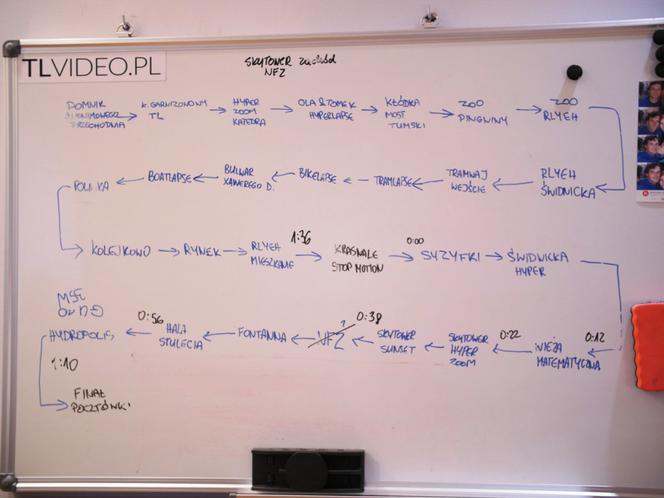 TLVIDEO.PL
SKYTOWER zachód
NFZ
K. GARNIZONOWY
TL
HYPER
ZOOM
KATEDRA
OLA & TOMEK
HYPERLAPSE
KŁÓDKA
MOST
TUMSKI
ZOO
PINGWINY
ZOO
RLYEH
POLINKA
BOATLAPSE
BULWAR
XAWEREGO D.
BIKELAPSE
TRAMLAPSE
TRAMWAJ
WEJŚCIE
RLYEH
ŚWIDNICKA
KOLEJKOWO
RYNEK
RLYEH
MIESZKANIE
1:36
KRASNALE
STOP MOTION
0:00
SYZYFKI
ŚWIDNICKA
HYPER
HYDROPOLIS
0:56
HALA
STULECIA
FONTANNA
NFZ
?
0:38
SKYTOWER
SUNSET
SKYTOWER
HYPER
ZOOM
0:22
WIEŻA
MATEMATYCZNA
0:12
1:10
FINAŁ
POCZTÓWKI